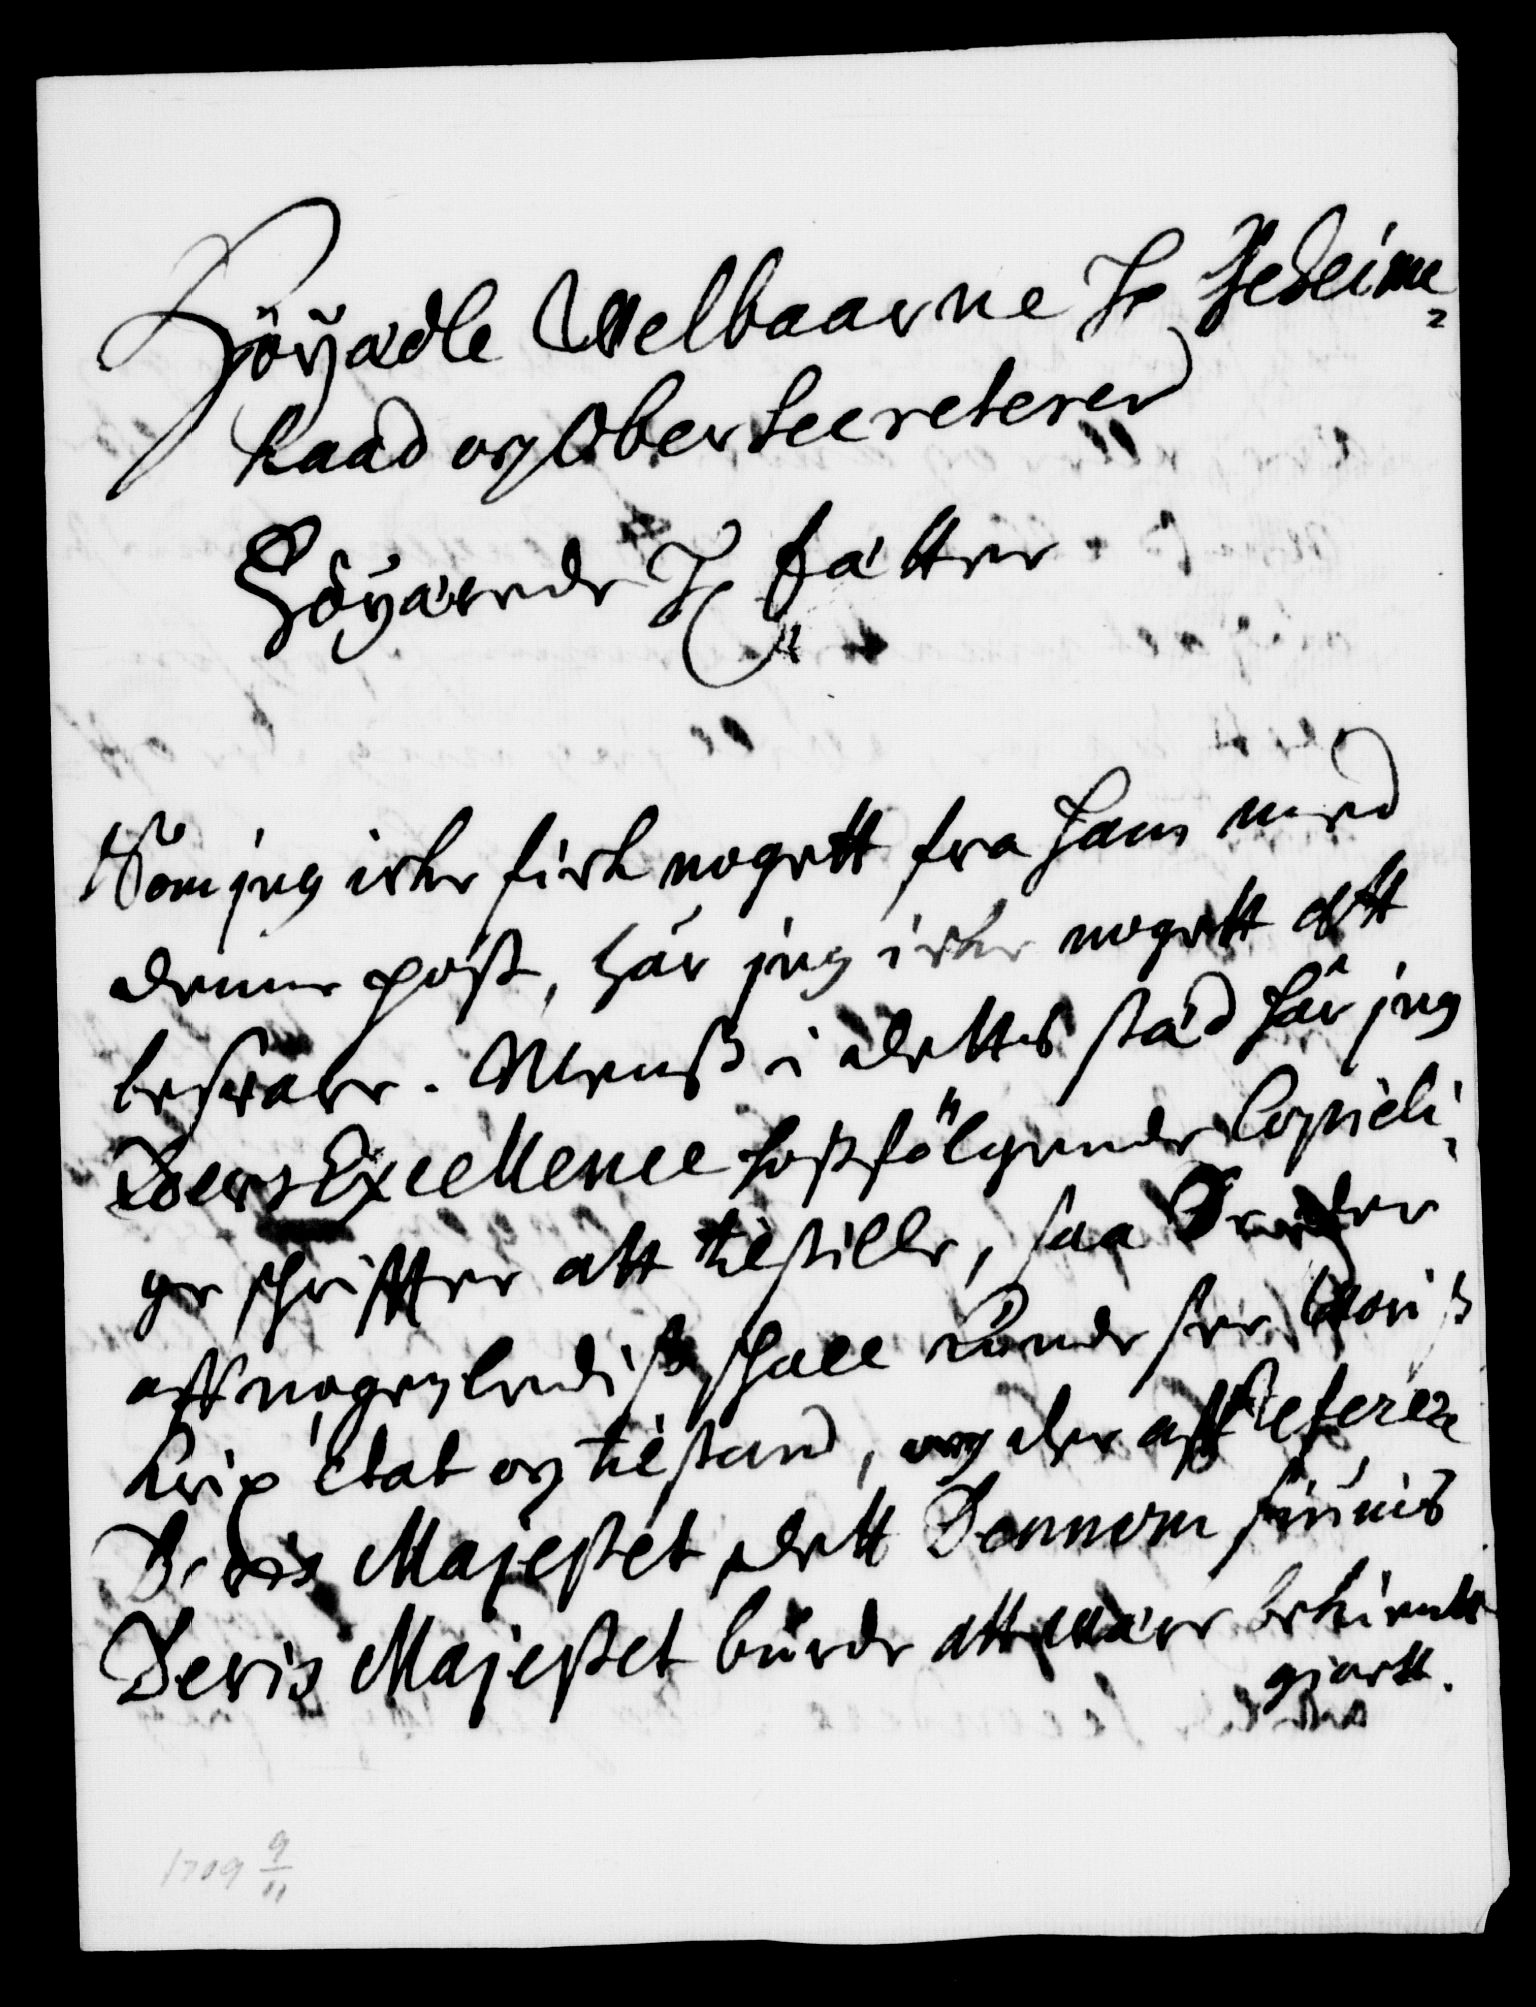 Höÿædle Welbaarne Hr Geheime-
Raad og Ober Secreterer
Höyärede Hr fätter
Som jeg icke fick nogett fra ham med
denne post, har jeg icke nogett att
besvare. Menß i dettes städ här jeg
Ders Excellence hoßfölgende Copieli-
ge schrifter att tilstille, saa
aff nogenledis schall kunde see voris
Krigs etat og tilstand, og der aff referere
Deris Majestet dett Dennem siunis
Deris Majestet burde att være bekiente
giortt.
1709 9/11